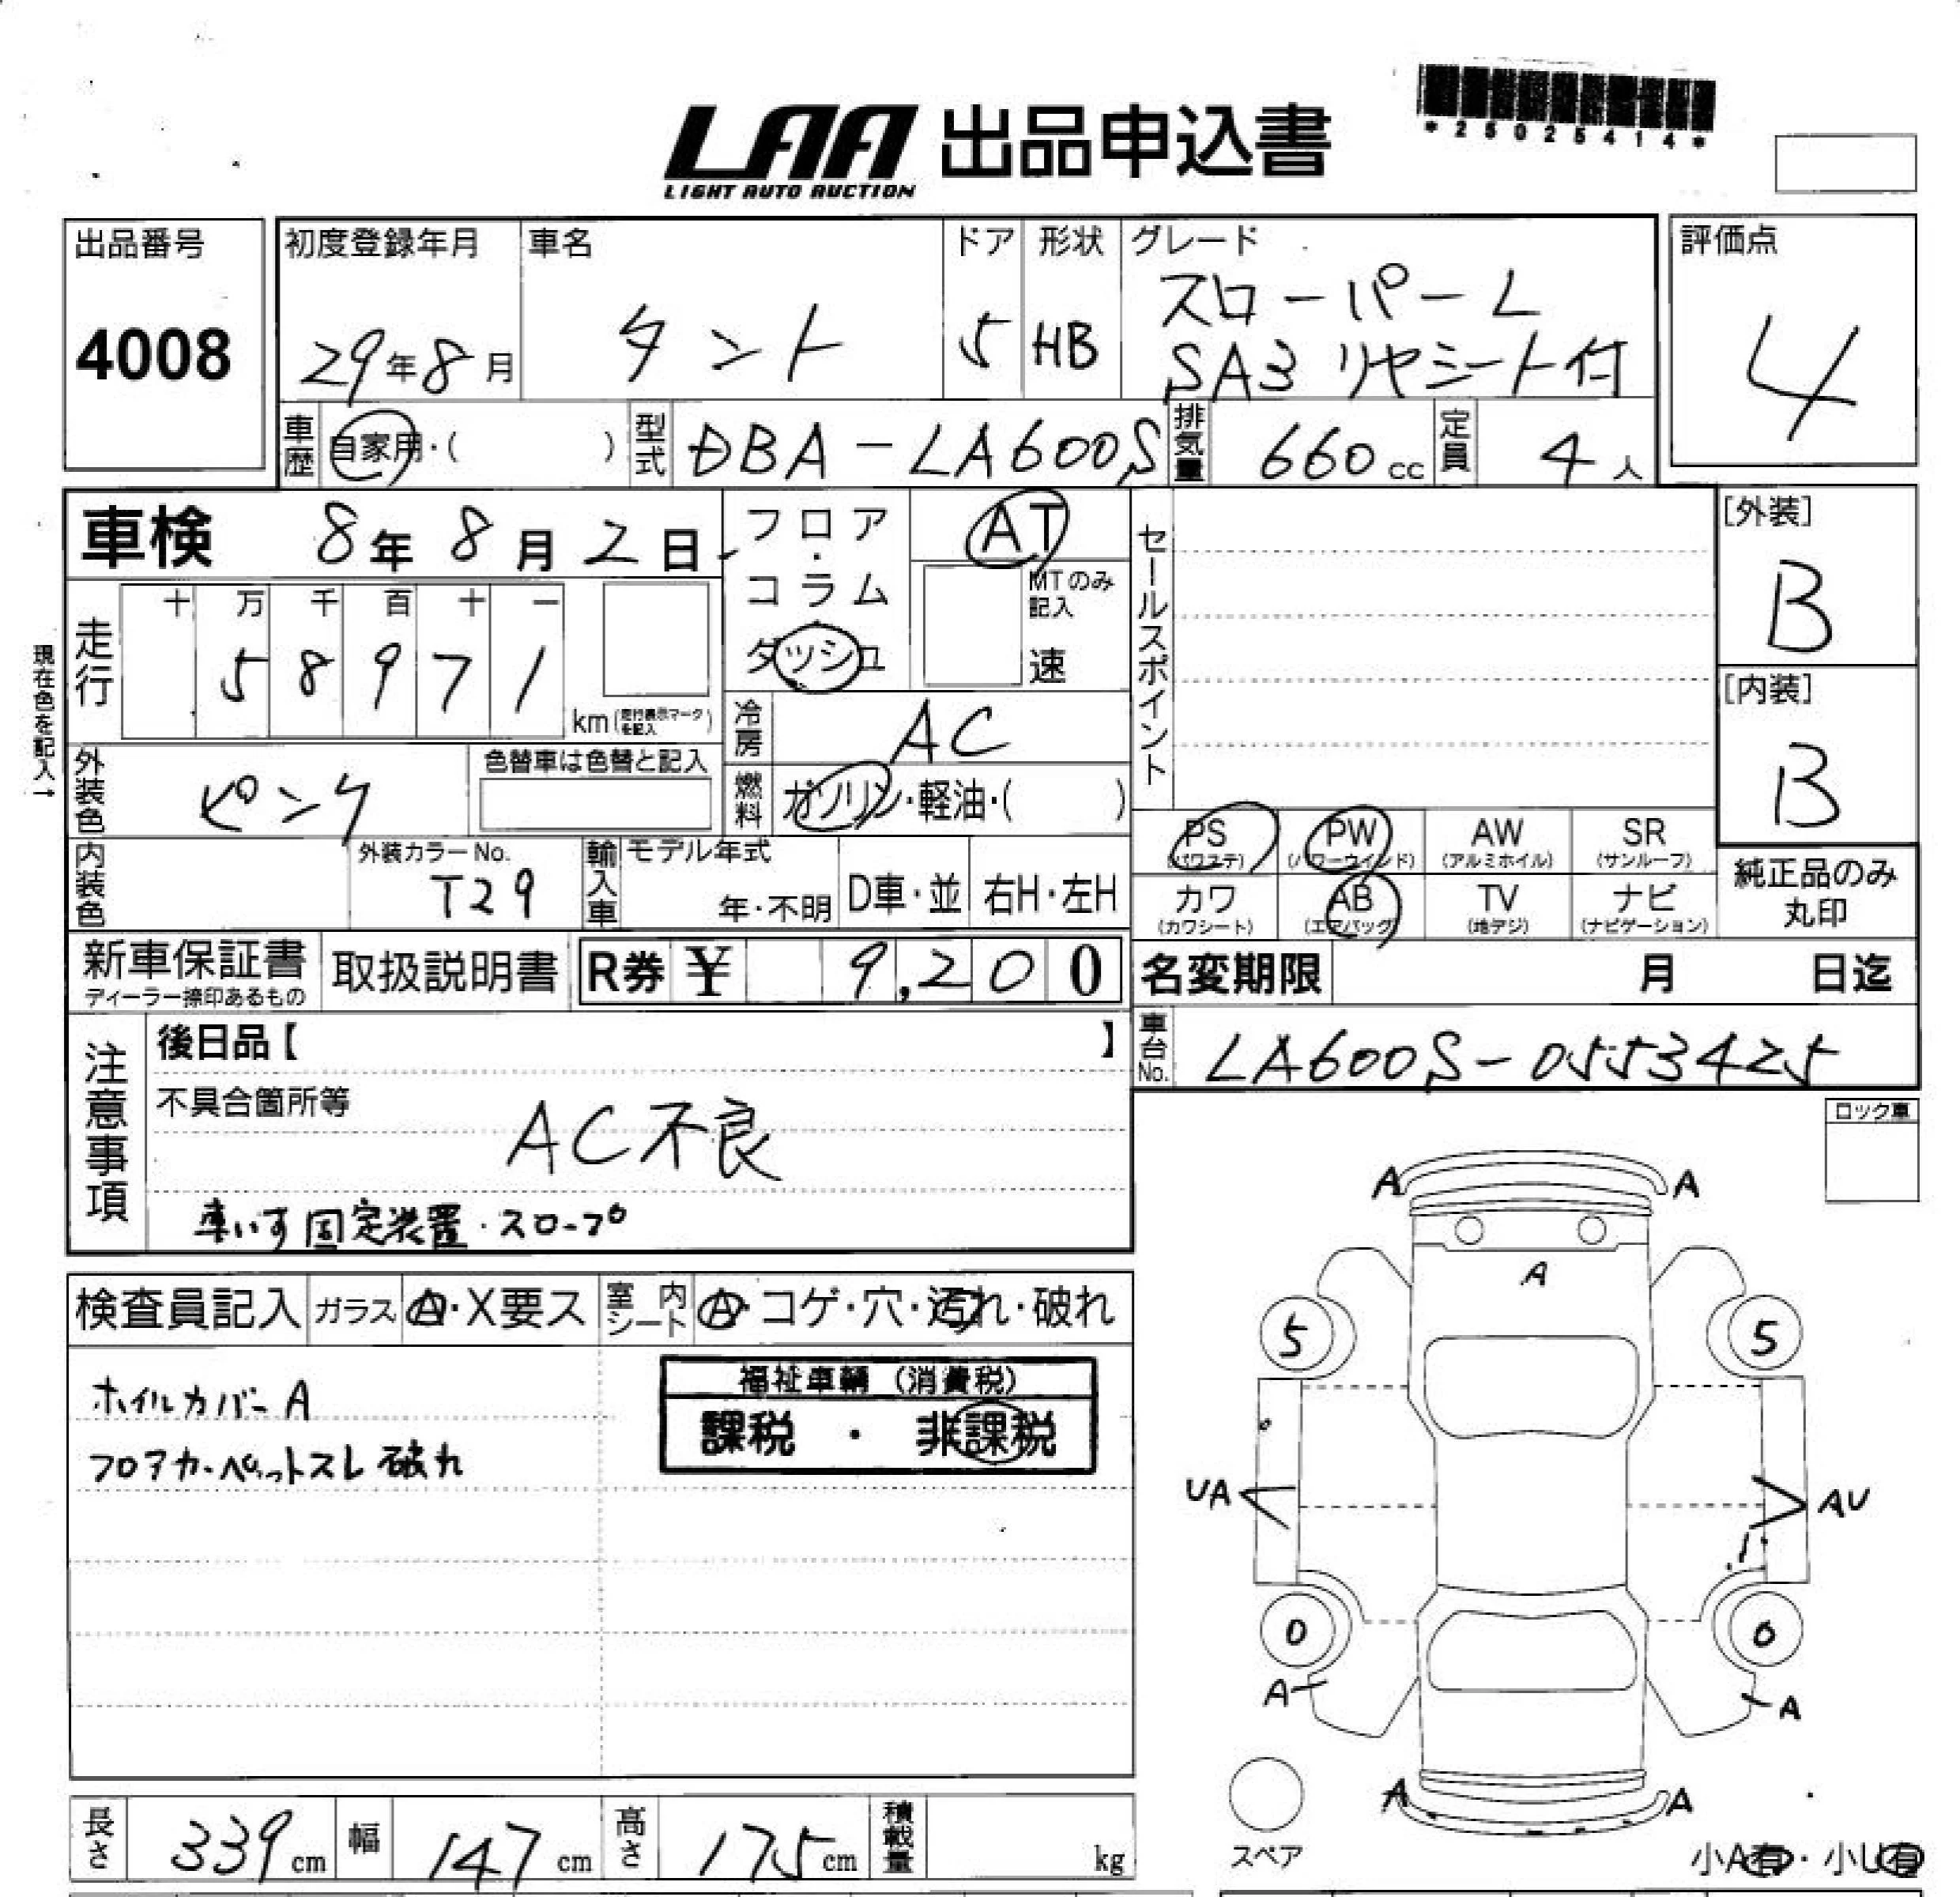 LAA 出品申込書
LIGHT AUTO AUCTION
*25025414*
出品番号
4008
初度登録年月
29年8月
車名
タント
ドア
5
形状
HB
グレード
スローパーL
SA3 リヤシート付
評価点
4
車歴
自家用・( )
型式
DBA-LA600S
排気量
660cc
定員
4人
車検 8年8月2日
フロア・コラム
ダッシュ
AT
MTのみ記入
速
セールスポイント
[外装]
B
[内装]
B
現在色を記入→
走行
十 万 千 百 十 一
5 8 9 7 1
km(走行表示マークを記入)
冷房
AC
外装色
ピンク
色替車は色替と記入
燃料
ガソリン・軽油・( )
PS
(パワステ)
PW
(パワーウインド)
AW
(アルミホイル)
SR
(サンルーフ)
内装色
外装カラーNo.
T29
輸入車
モデル年式
年・不明
D車・並
右H・左H
カワ
(カワシート)
AB
(エアバッグ)
TV
(地デジ)
ナビ
(ナビゲーション)
純正品のみ
丸印
新車保証書
ディーラー捺印あるもの
取扱説明書
R券 ¥ 9,200
名変期限 月 日迄
注意事項
後日品【 】
車台No.
LA600S-0553425
不具合箇所等
AC不良
車いす固定装置・スロープ
ロック車
検査員記入
ガラス
A・X要ス
室内シート
A・コゲ・穴・汚れ・破れ
ホイルカバーA
フロアカーペットスレ破れ
福祉車輌 (消費税)
課税 ・ 非課税
A A
A
5 5
UA AU
0 0
A A
A A
スペア
小A有・小U有
長さ
339cm
幅
147cm
高さ
175cm
積載量
kg